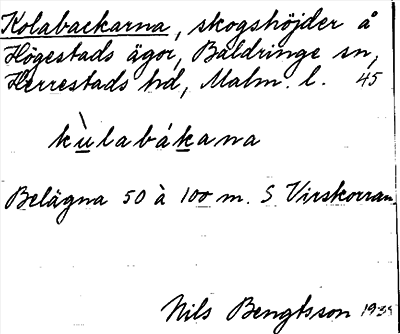 Kolabackarna, skogshöjder å
Högestads ägor, Baldringe sn,
Herrestads hd, Malm. l. 45
kùlabákana
Belägna 50 à 100 m. S Virskorran.
Nils Bengtsson